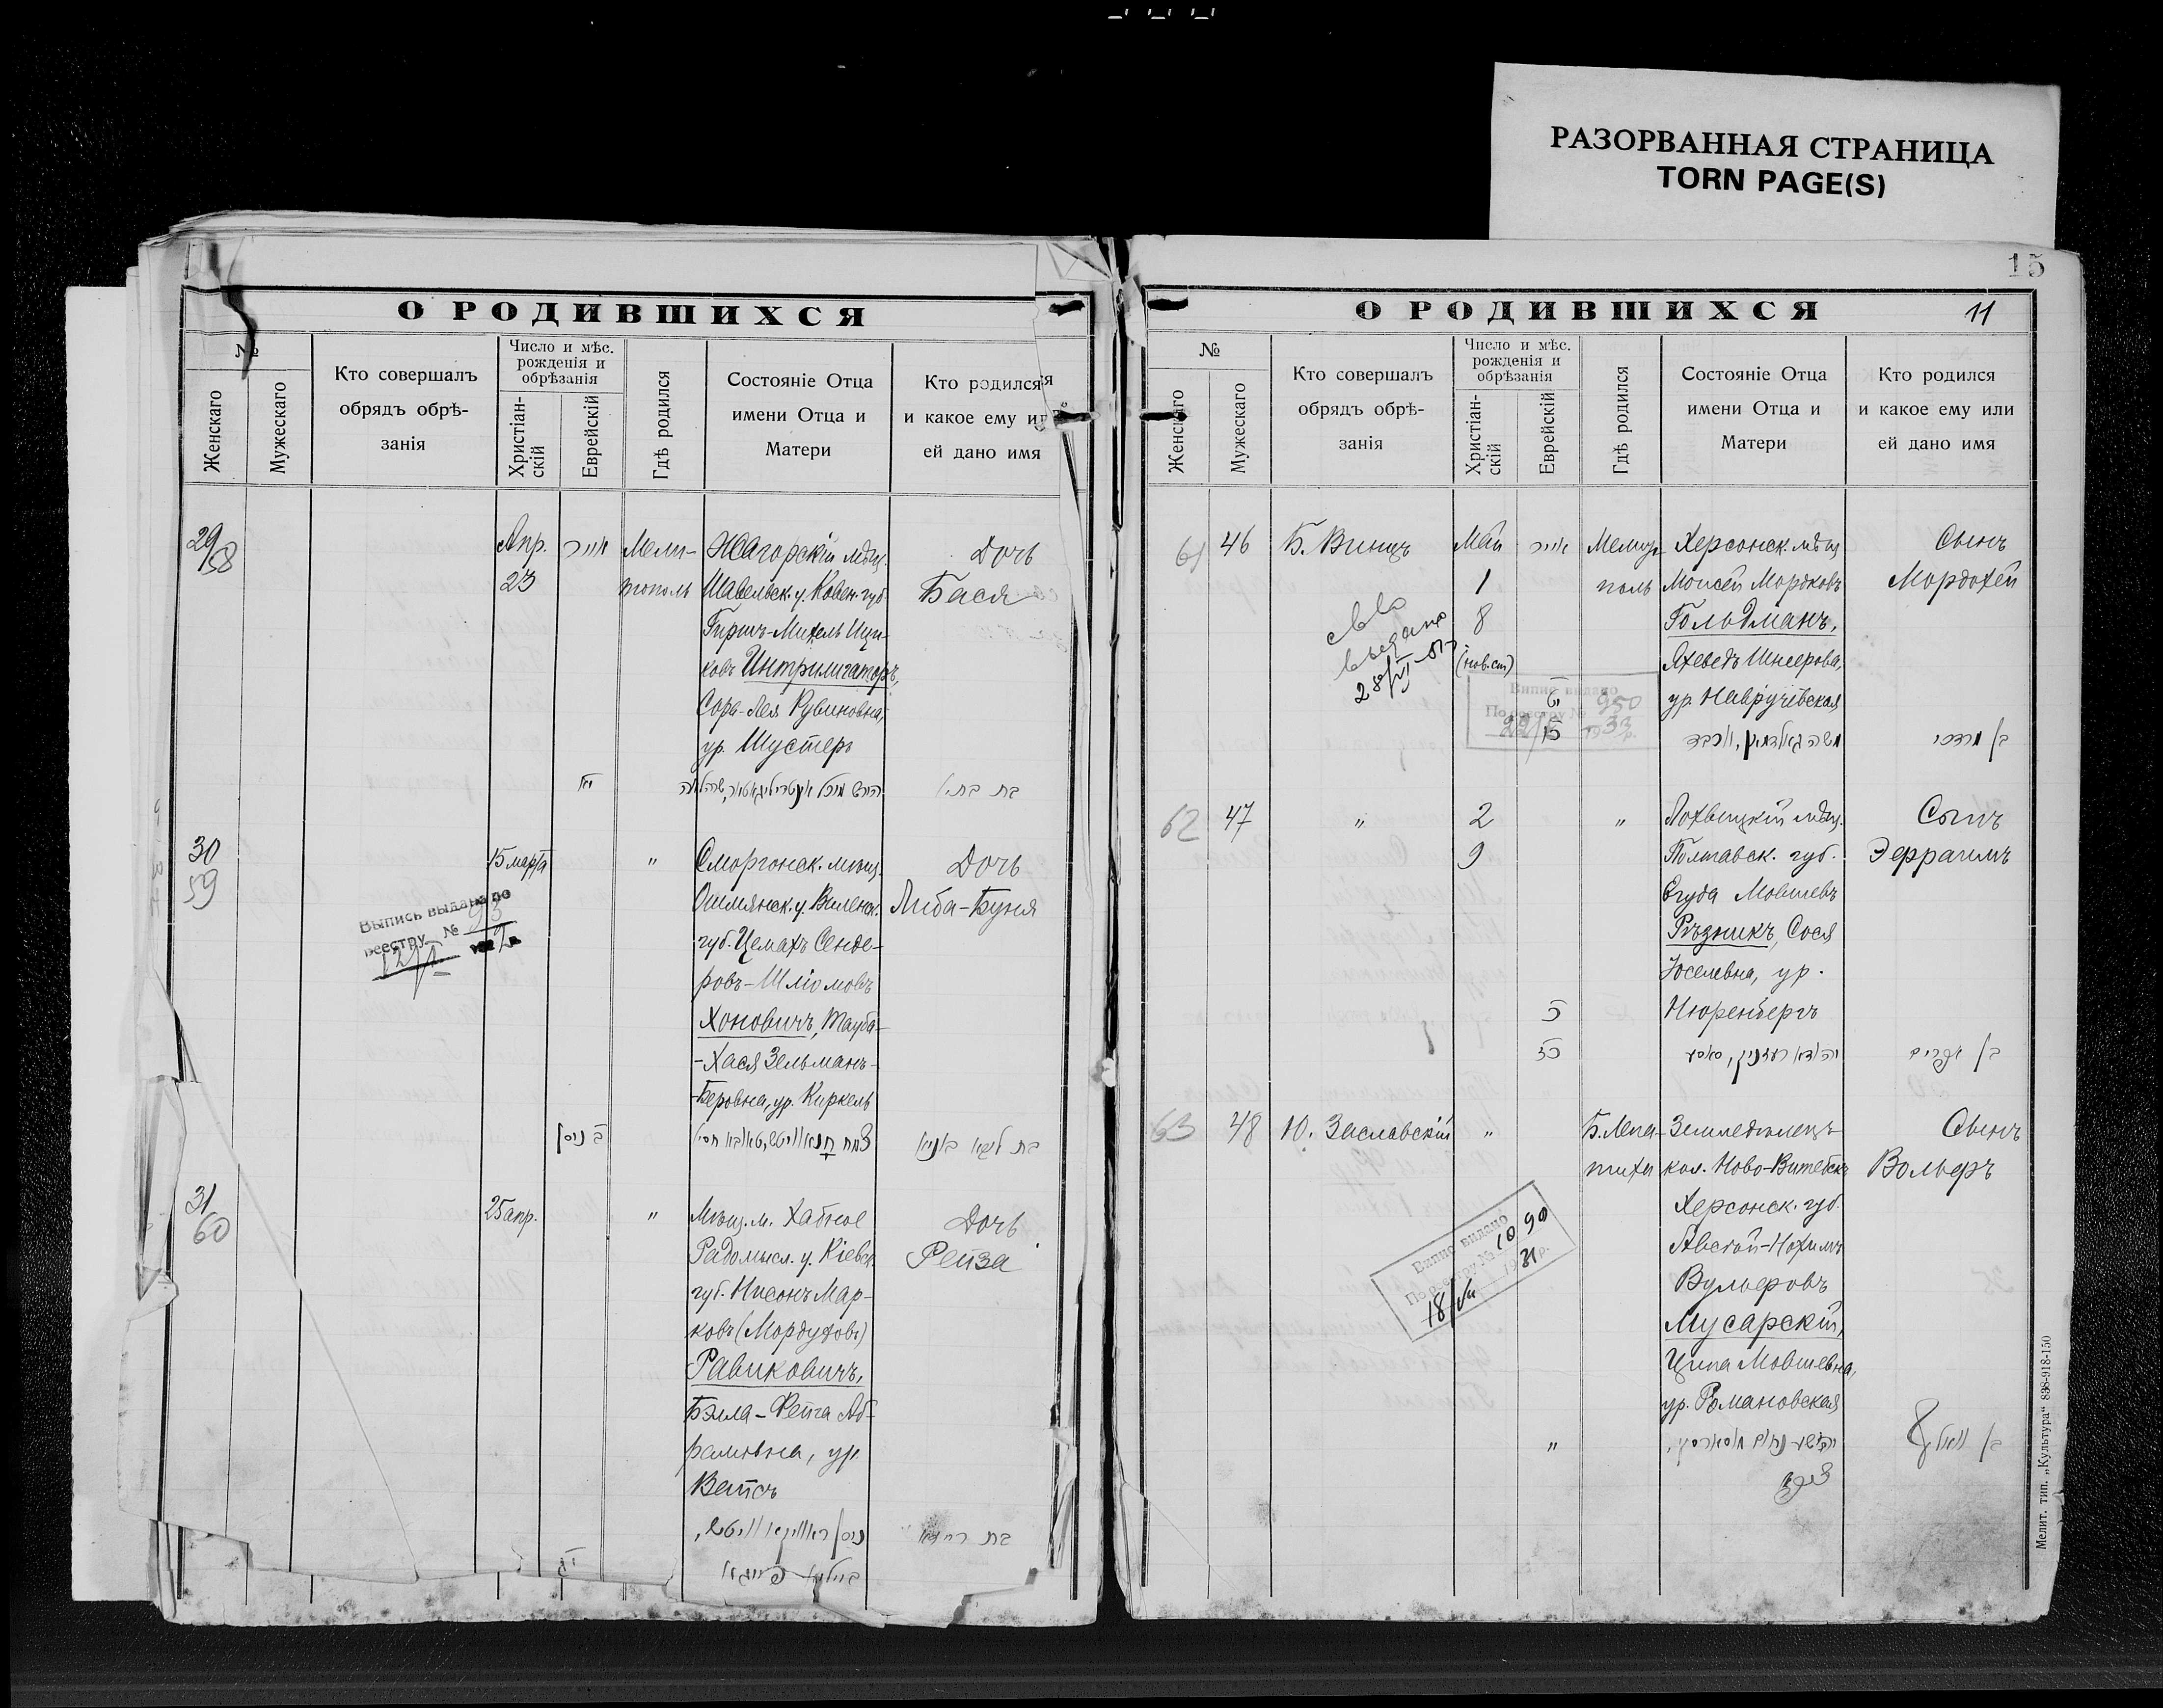 РАЗОРВАННАЯ СТРАНИЦА
TORN PAGE(S)
О РОДИВШИХСЯ
№
Женскаго
Мужескаго
Кто совершалъ
обрядъ обрѣ-
занія
Число и мѣс.
рожденія и
обрѣзанія
Христіан-
скій
Еврейскій
Гдѣ родился
Состояніе Отца
имени Отца и
Матери
Кто родился
и какое ему или
ей дано имя
29/58
Апр.
23
אייר
Мели-
тополь
Жагорскій мѣщ.
Шавельск. у. Ковен. губ
Гиршъ-Михель Ици-
ковъ Интрилигаторъ,
Сора-Лея Рувиновна,
ур. Шустеръ
Дочь
Бася
30
59
15 марта
"
Сморгонск. мѣщ.
Ошмянск. у. Виленск.
губ. Цемахъ Сенде-
ровъ-Шліомовъ
Хоновичъ, Тауба-
-Хася Зельманъ-
-Беровна, ур. Киркель
Дочь
Либа-Буня
Выпись выдана по
реестру № 93
ב ניסן
31
60
25 апр.
"
Мѣщ. м. Хабное
Радомысл. у. Кіевск.
губ. Нисонъ Мар-
ковъ (Мордуховъ)
Равиковичъ,
Бэлла-Фейга Аб-
рамовна, ур.
Вейсъ
Дочь
Рейза
15
О РОДИВШИХСЯ
11
№
Женскаго
Мужескаго
Кто совершалъ
обрядъ обрѣ-
занія
Число и мѣс.
рожденія и
обрѣзанія
Христіан-
скій
Еврейскій
Гдѣ родился
Состояніе Отца
имени Отца и
Матери
Кто родился
и какое ему или
ей дано имя
61
46
Б. Винцъ
Май
1
8
(нов. ст)
אייר
Мелито-
поль
Херсонск. мѣщ
Моисей Мордковъ
Гольдманъ,
Яхеведъ Шнеерова,
ур. Навручевская
משה גאלדמאן, יוכבד
Сынъ
Мордохей
בן מרדכי
Випис видано
По реєстру № 950
1933 р.
62
47
"
2
9
"
Лохвицкій мѣщ.
Полтавск. губ.
Егуда Мовшевъ
Рѣзникъ, Сося
Іоселевна, ур.
Нюренбергъ
Сынъ
Эфраимъ
בן אפרים
63
48
Ю. Заславскій
"
Б. Лепа-
тиха
Земледѣлецъ
кол. Ново-Витебскъ
Херсонск. губ.
Авсій-Нохимъ
Вульфовъ
Мусарскій,
Ципа Мовшевна,
ур. Романовская
Сынъ
Вольфъ
בן וואלף
Випис видано
По реєстру № 1090
18/VII 1931 р.
"
Мелит. тип. „Культура“ 838-918-150